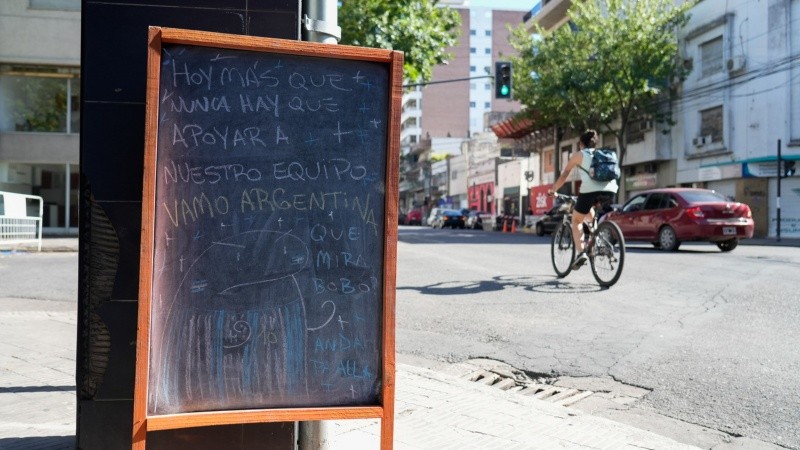 HOY MÁS QUE
NUNCA HAY QUE
APOYAR A
NUESTRO EQUIPO.
VAMO ARGENTINA
QUE
MIRA
BOBO?
ANDA
P'ALLA
10